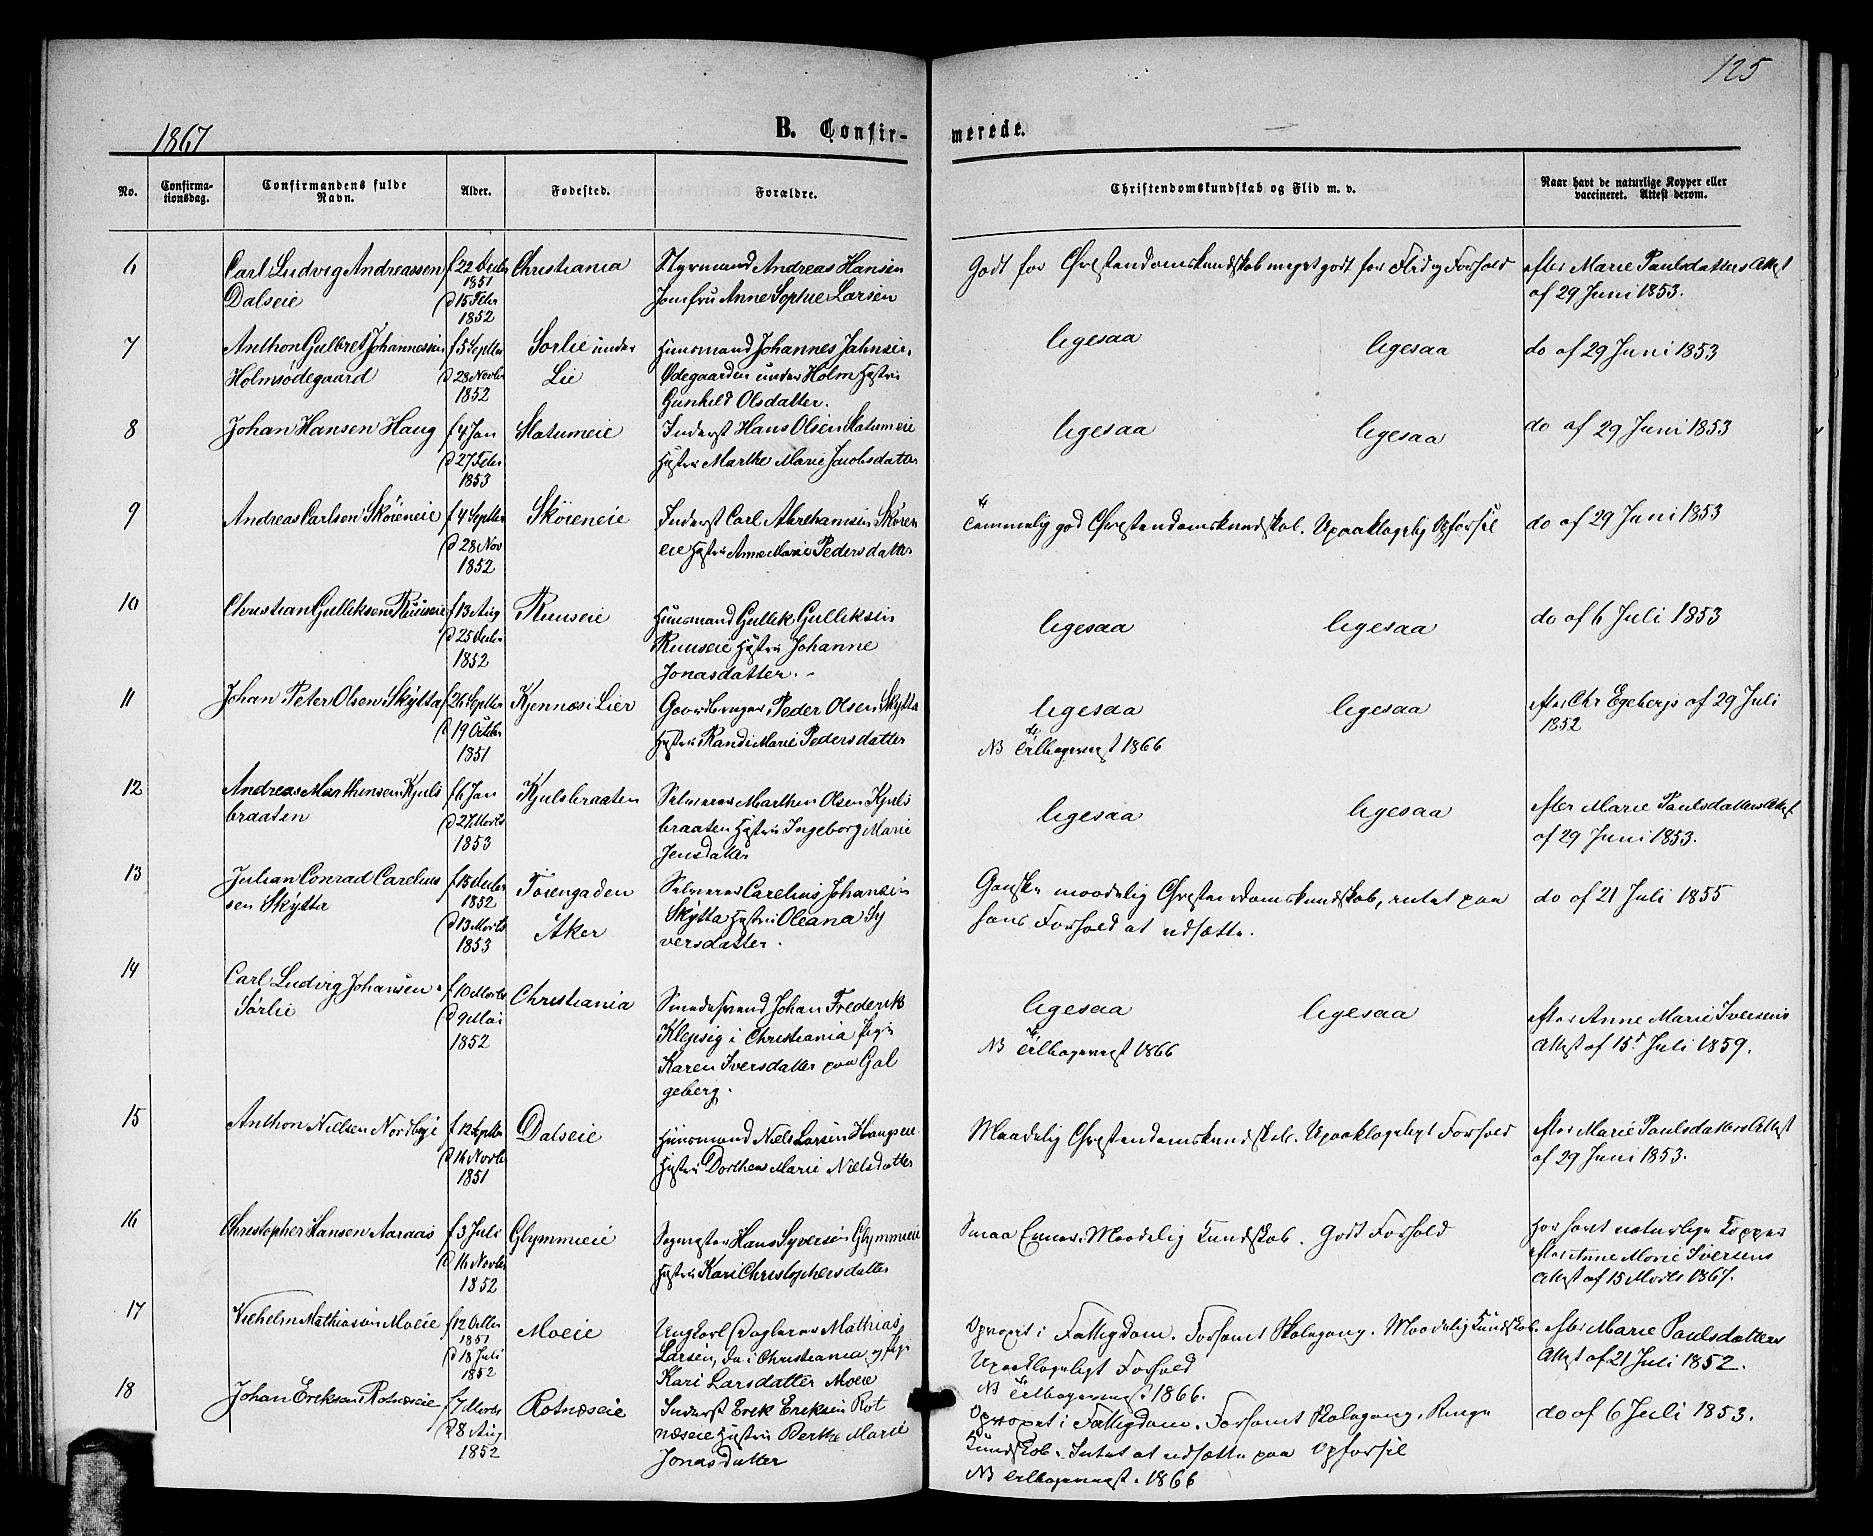 125
1867
B. Confir-
merede.
No.
Confirma-
tionsdag.
Confirmandens fulde
Navn.
Alder.
Fødested.
Forældre.
Christendomskundskab og Flid m. v.
Naar havt de naturlige Kopper eller
vaccineret. Attest derom.
6
Carl Ludvig Andreassen
Dalseie
f 22 Decbr
1851
d 15 Febr
1852
Christiania
Styrmand Andreas Hansen
Jomfru Anne Sophie Larsen
Godt for Christendomskundskab meget godt for Flid og Forhold
efter Marie Paulsdatters Attest
af 29 Juni 1853.
7
Anthon Gulbret Johannessen
Holmsødegaard
f 5 Septbr
d 28 Novbr
1852
Sorlie under
Lie
Huusmand Johannes Jahnsen,
Ødegaarden under Holm Hustru
Gunhild Olsdatter.
ligesaa
ligesaa
do af 29 Juni 1853
8
Johan Hansen Haug
f 4 Jan
d 27 Febr
1853
Slatumeie
Inderst Hans Olsen Slatumeie
Hustru Marthe Marie Jacobsdatter
ligesaa
ligesaa
do af 29 Juni 1853
9
Andreas Carlsen Skøreneie
f 4 Septbr
d 28 Nov
1852
Skøreneie
Inderst Carl Abrahamsen Skøren
eie Hustru Anne Marie Pedersdatter
Temmelig god Christendomskundskab. Upaaklagelig Opførsel
do af 29 Juni 1853
10
Christian Gulliksen Ruuseie
f 13 Aug
d 25 Decbr
1852
Ruuseie
Huusmand Gullik Gulliksen
Ruuseie Hustru Johanne
Jonasdatter.
ligesaa
ligesaa
do af 6 Juli 1853
11
Johan Peter Olsen Skytta
f 26 Septbr
d 19 Octbr
1851
Kjennæs i Lier
Gaardbruger Peder Olsen Skytta
Hustru Randi Marie Pedersdatter
ligesaa
ligesaa
NB Tilbagevigt 1866
efter Chr Egebergs af 29 Juli
1852
12
Andreas Marthinsen Kjuls
braaten
f 6 Jan
d 27 Marts
1853
Kjulsbraaten
Selveier Marthin Olsen Kjuls
braaten Hustru Ingeborg Marie
Jensdatter
ligesaa
ligesaa
efter Marie Paulsdatters Attest
af 29 Juni 1853.
13
Julian Conrad Carelius
sen Skytta
f 15 Decbr
1852
d 13 Marts
1853
Torengaden
Aker
Selveier Carelius Johansen
Skytta Hustru Oleana Sy
versdatter.
Ganske maadelig Christendomskundskab, intet paa
hans Forhold at udsætte.
do af 21 Juli 1855
14
Carl Ludvig Johansen
Sørlie
f 10 Marts
d 9 Mai
1852
Christiania
Smedesvend Johan Frederik
Klepsig i Christiania Pige
Karen Iversdatter paa Gal
geberg.
ligesaa
ligesaa
NB Tilbagevigt 1866
efter Anne Marie Iversens
Attest af 15 Juli 1859.
15
Anthon Nielsen Nordbye
f 12 Septbr
d 16 Novbr
1851
Dalseie
Huusmand Niels Larsen Haugseie
Hustru Dorthea Marie Nielsdatter
Maadelig Christendomskundskab. Upaaklageligt Forhold
efter Marie Paulsdatters Attest
af 29 Juni 1853.
16
Christopher Hansen Aaraas
f 3 Juli
d 16 Novbr
1852
Glymmeie
Sagmester Hans Syversen Glymmeie
Hustru Kari Christophersdatter
Smaa Evner. Maadelig Kundskab. Godt Forhold
Har havt naturlige Kopper
efter Anne Marie Iversens
Attest af 15 Marts 1867.
17
Vilhelm Mathiassen Moeie
f 12 Octbr
1851
d 18 Juli
1852
Moeie
Ungkarl Daglønner Mathias
Larsen, da i Christiania og Pige
Kari Larsdatter Moeie
Opvoxet i Fattigdom. Forsømt Skolegang. Maadelig Kundskab.
Upaaklageligt Forhold
NB Tilbagevigt 1866.
efter Marie Paulsdatters
Attest af 21 Juli 1852.
18
Johan Eriksen Rotnæseie
f 7 Marts
d 8 Aug
1852
Rotnæseie
Inderst Erek Eriksen Rot
næseie Hustru Berthe Marie
Jonasdatter
Opvoxet i Fattigdom. Forsømt Skolegang. Ringe
Kundskab. Intet at udsætte paa Opførsel
NB Tilbagevigt 1866
do af 6 Juli 1853.